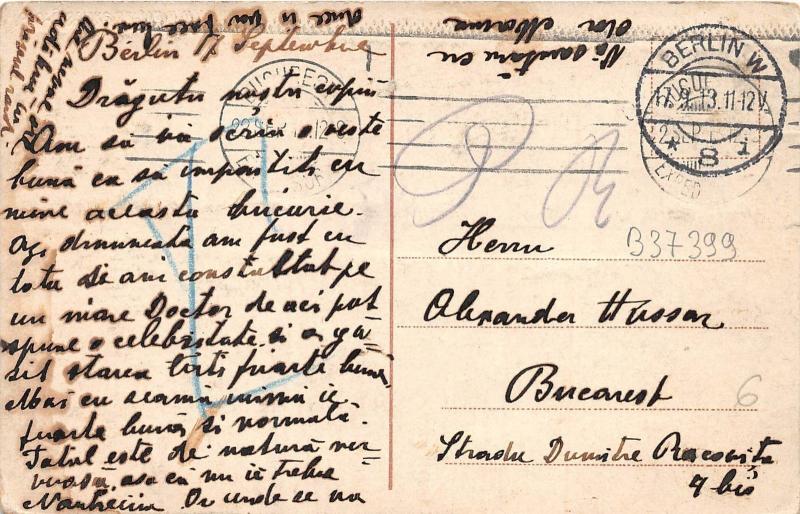 Berlin 17 Septembrie
Drăguții noștri copii
Am să vă scriu o veste
bună ca să impartiți cu
mine această bucurie.
Azi dimineață am fost cu
tata și am constultat pe
un mare Doctor de aci pot
spune o celebritate și a gă=
sit starea lirti foarte bună
Mai cu seamă inima ie
foarte bună și normală.
Totul este de natură ner=
vuasă, asa că nu ie trebue
Nauheim. Or unde se va
duce îi va face bine.
Vă sărutăm cu
dor Mama
BERLIN W
17.9.13.11-12V.
* 8 i
EXPED
Herrn
B37399
Alexander Hussar
Bucarest
6
Strada Dumitre Racovita
9 bis